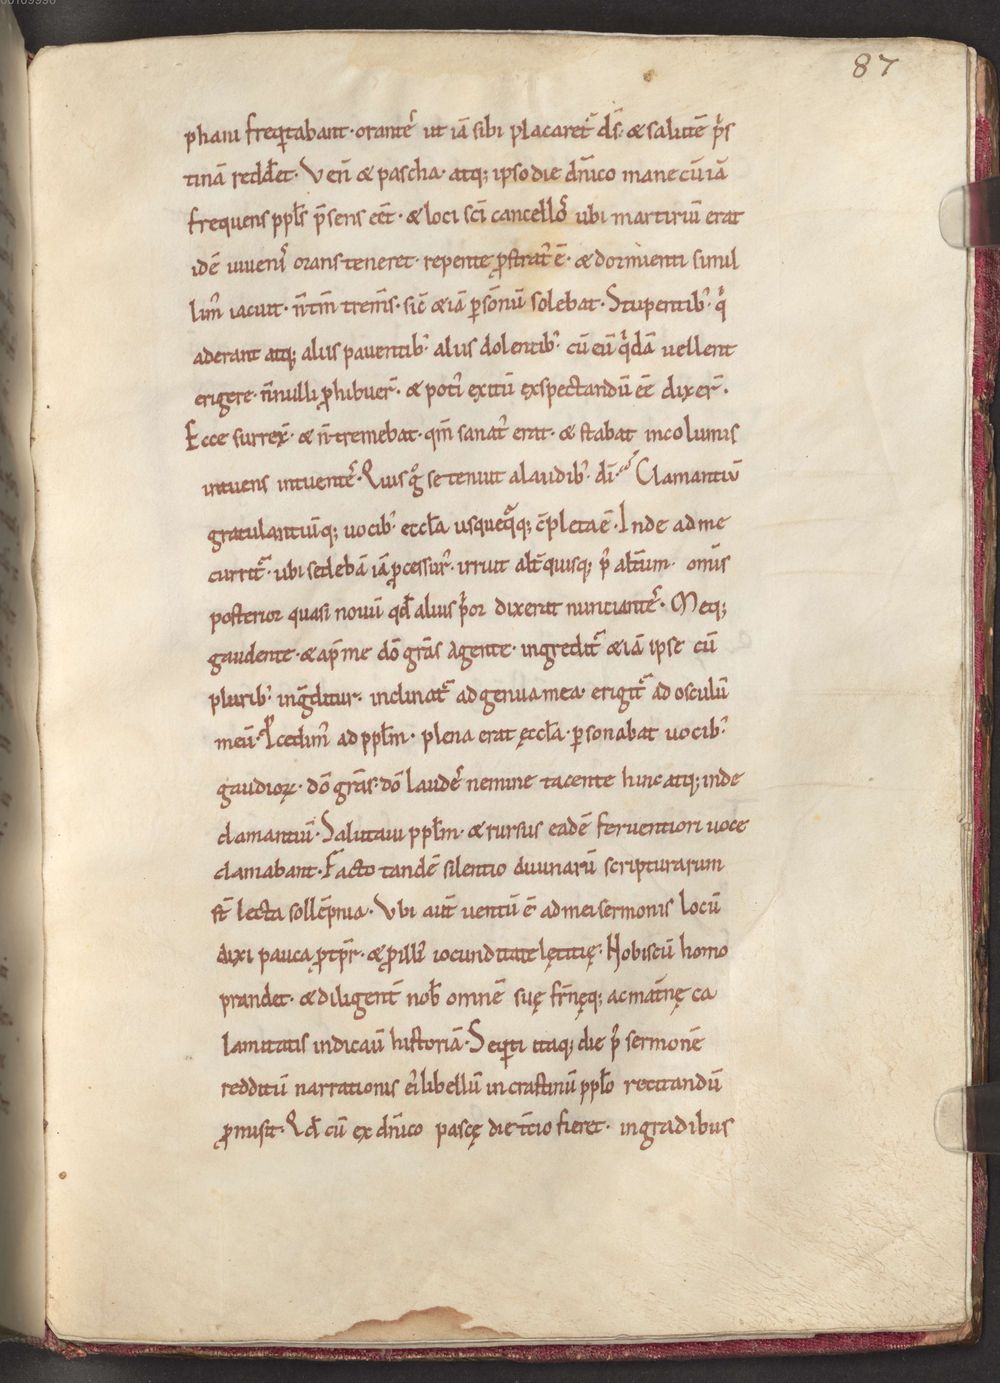 87
phani freqͥtabant· orantеs̉ ut iā sibi placaret᷑ d̄s· & salutē pͥs
tinā redd̄et· Ven̄ & pascha· atq; ipso die dn̄ico mane cū iā
frequens ppl̄s p̄sens eēt· & loci sc̄i cancellos̉ ubi martiriū erat
idē iuuenis̉ orans teneret· repente ꝓstrat᷒ ē· & dormienti simil
lim᷒ iacuit· n̄ tm̄ trem̄s· sic̄ & iā ꝑ sōnū solebat· Stupentib᷒ qͥ
aderant atq; aliis pauentib᷒ aliis dolentib᷒ cū eū qͥdā uellent
erigere· n̄nulli ꝓhibuer̄· & poti᷒ exitū exspectandū eē dixer̄·
Ecce surrex̄· & n̄ tremebat· qm̄ sanat᷒ erat· & stabat incolumis
intuens intuentes̉· Quis gͦ se tenuit a laudib᷒ dī· Clamantiū
gratulantiūq; uocib᷒ eccl̄a usquequaq; c̄pleta ē· Inde ad me
currit᷑· ubi sedebā iā ꝓcessur᷒· irruit alt̄ quisq; p᷒ alt̄um· om̄is
posterior quasi nouū qd̄ alius pͥor dixerat nunciantes̉· Meq;
gaudente· & ap̄ me dō grās agente· ingredit᷑ & iā ipse cū
plurib᷒ inḡditur· inclinat᷑ ad genua mea· erigit᷑ ad osculū
meū· Ꝓcedim᷒ ad ppl̄m· plena erat ęccl̄a· ꝑsonabat uocib᷒
gaudioꝝ· dō grās· dō laudes̉ nemine tacente hinc atq; inde
clamantiū· Salutaui ppl̄m· & rursus eadē feruentiori uoce
clamabant· Facto tandē silentio diuinarū scripturarum
st̄ lecta sollēpnia· Vbi aut̄ uentū ē ad mei sermonis locū
dixi pauca ꝓ tp̄r· & ꝓ illi᷒ iocunditate lętitię· Nobiscū homo
prandet· & diligent̄ nob̄ omnē suę fr̄nęq; ac mat̄nę ca
lamitatis indicauit historiā· Seq̄ti itaq; die p᷒ sermonē
redditū narrationis ei᷒ libellū in crastinū ppl̄o recitandū
ꝓmisit· Qd̄ cū ex dn̄ico pascę die t̄cio fieret· in gradibus